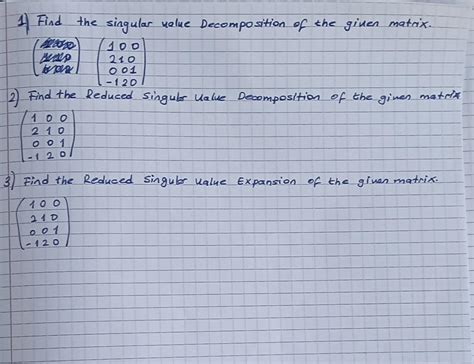 1) Find the singular value Decomposition of the given matrix.
1 0 0
2 1 0
0 0 1
-1 2 0
2) Find the Reduced Singular Value Decomposition of the given matrix
1 0 0
2 1 0
0 0 1
-1 2 0
3) Find the Reduced Singular value Expansion of the given matrix.
1 0 0
2 1 0
0 0 1
-1 2 0